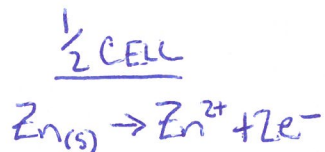 1/2 CELL
Zn(s) → Zn²⁺ + 2e⁻